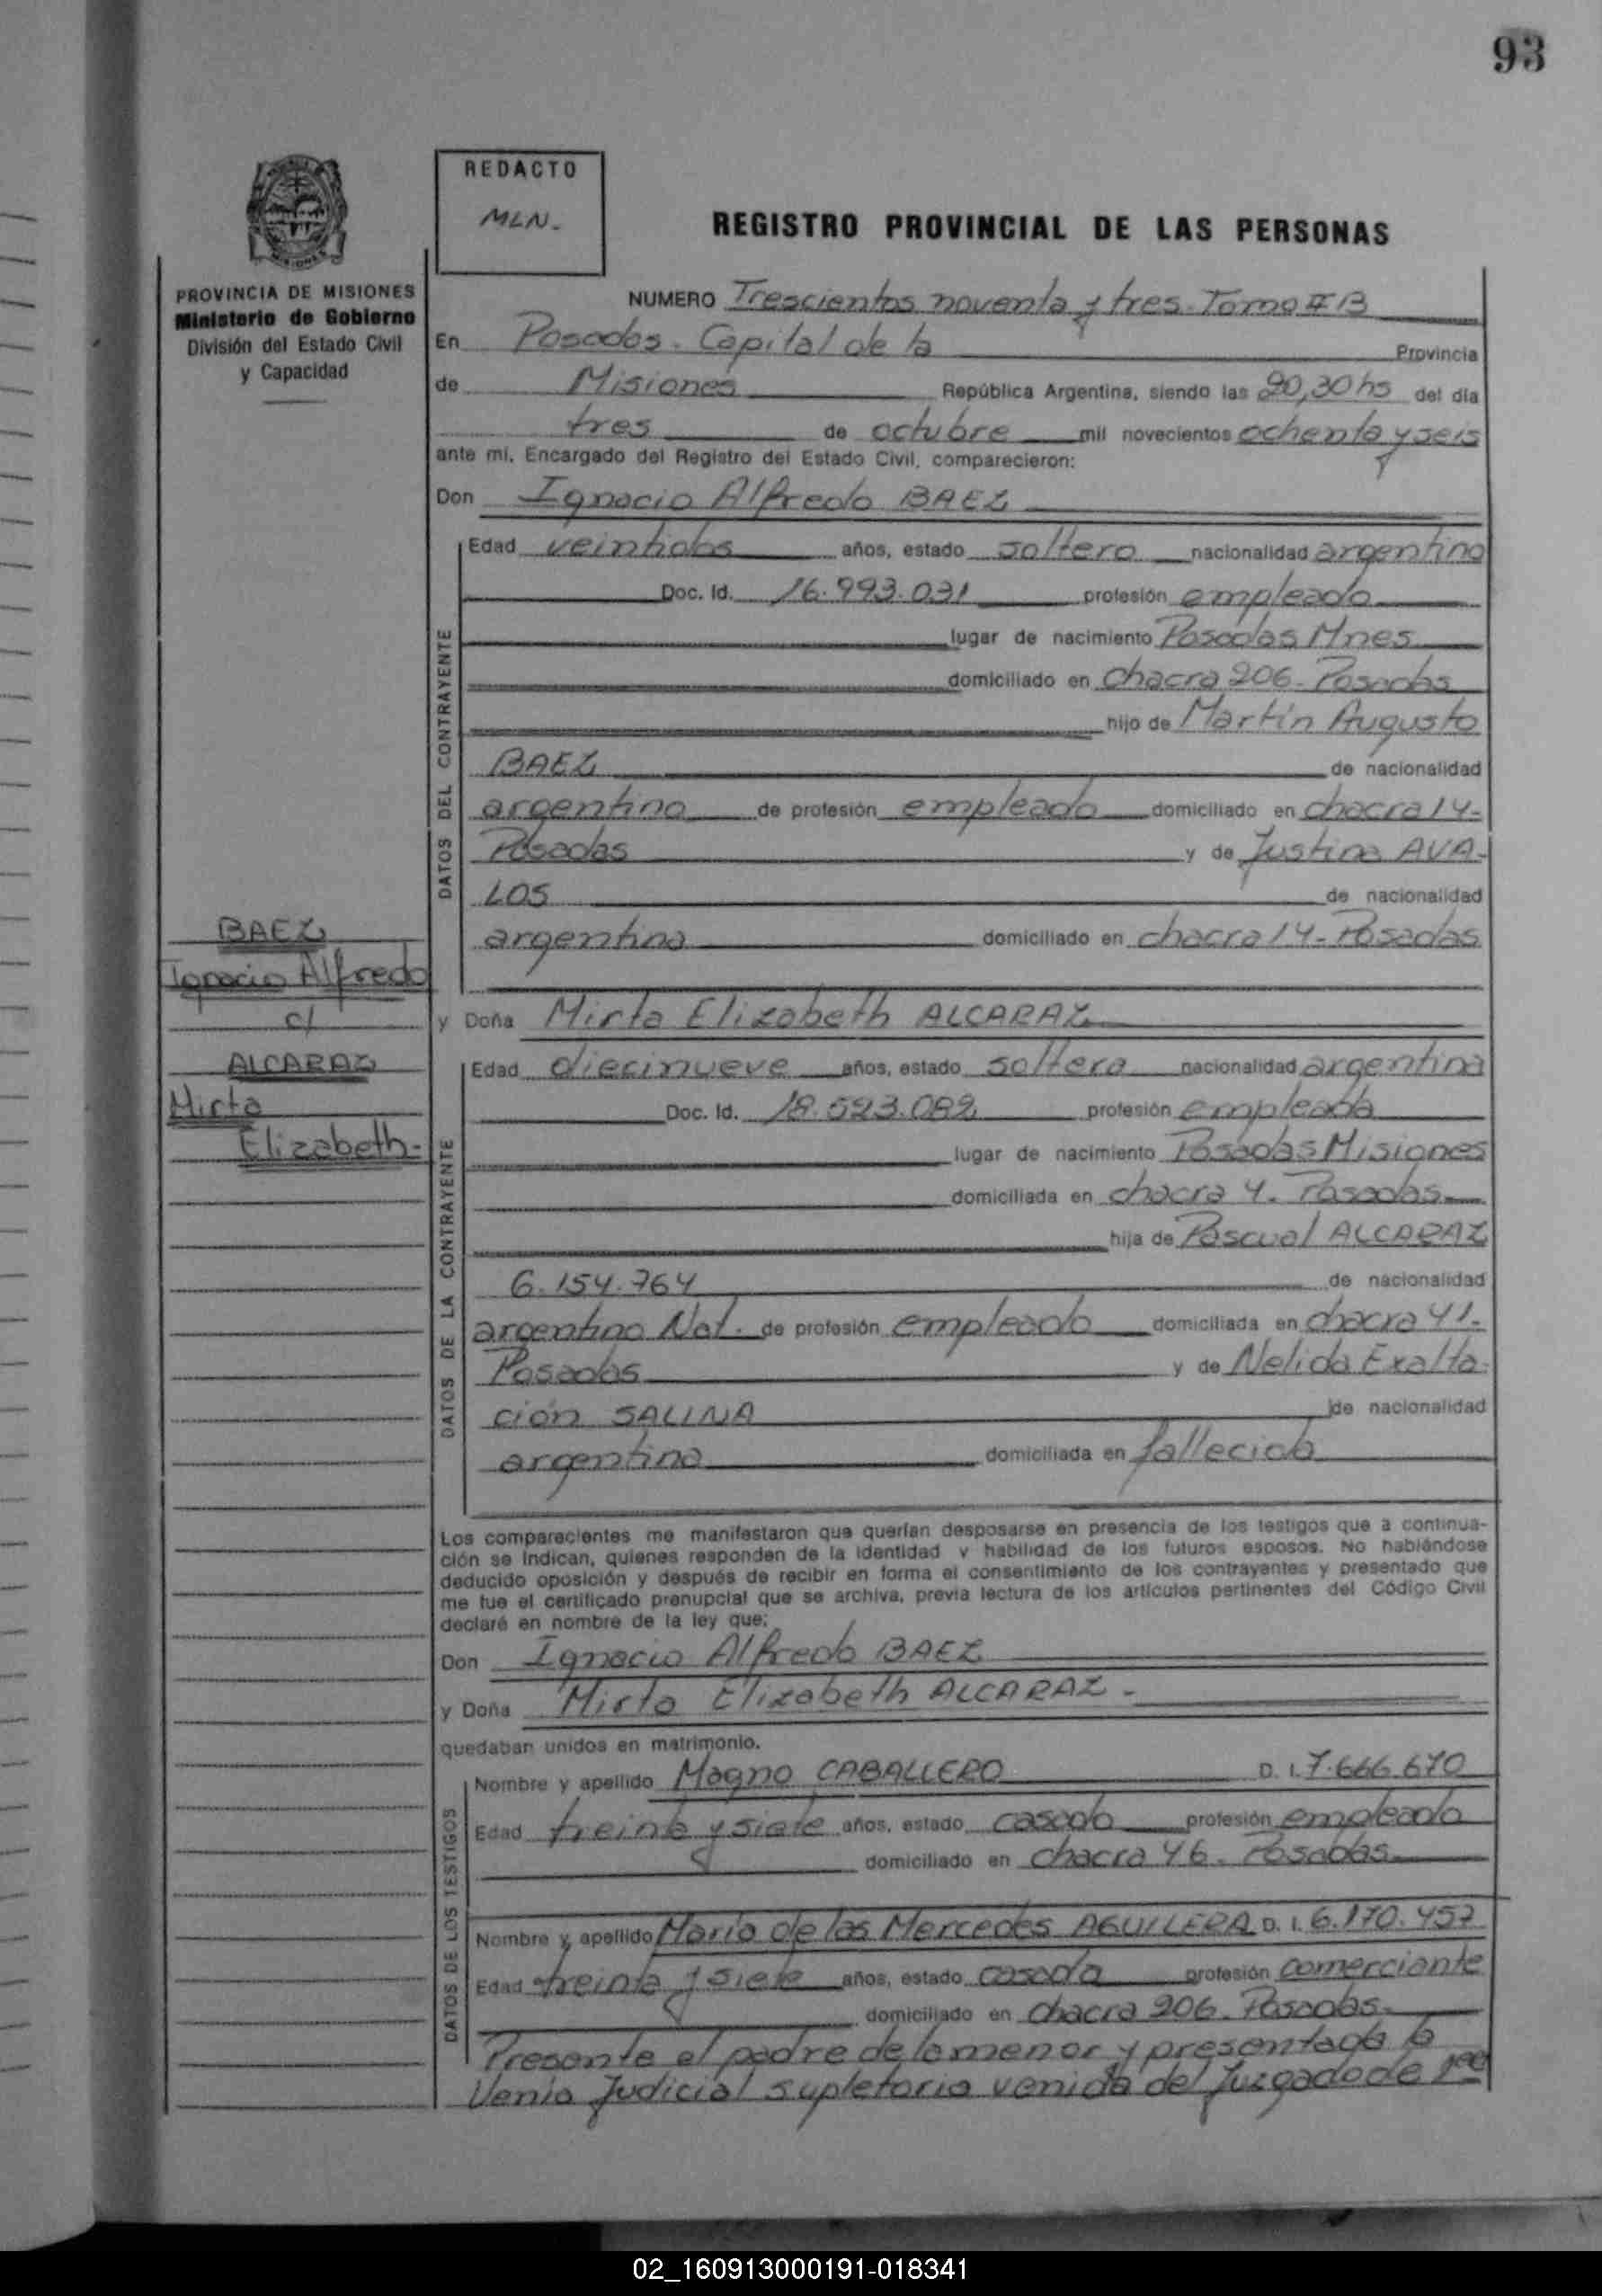 93
REDACTO
MLN.
REGISTRO PROVINCIAL DE LAS PERSONAS
PROVINCIA DE MISIONES
Ministerio de Gobierno
División del Estado Civil
y Capacidad
NUMERO Trescientos noventa y tres. Tomo II B
En Posadas. Capital de la Provincia
de Misiones República Argentina, siendo las 20,30 hs del día
tres de octubre mil novecientos ochenta y seis
ante mí, Encargado del Registro del Estado Civil, comparecieron:
Don Ignacio Alfredo BAEZ
DATOS DEL CONTRAYENTE
Edad veintidos años, estado soltero nacionalidad argentino
Doc. Id. 16.993.031 profesión empleado
lugar de nacimiento Posadas Mnes
domiciliado en chacra 206. Posadas
hijo de Martín Augusto
BAEZ de nacionalidad
argentino de profesión empleado domiciliado en chacra 14-
Posadas y de Justina AVA-
LOS de nacionalidad
argentina domiciliado en chacra 14- Posadas
BAEZ
Ignacio Alfredo
c/
ALCARAZ
Mirta
Elizabeth-
y Doña Mirta Elizabeth ALCARAZ
DATOS DE LA CONTRAYENTE
Edad diecinueve años, estado soltera nacionalidad argentina
Doc. Id. 18.523.082 profesión empleada
lugar de nacimiento Posadas Misiones
domiciliada en chacra 4. Posadas
hija de Pascual ALCARAZ
6.154.764 de nacionalidad
argentino Nat. de profesión empleado domiciliada en chacra 41-
Posadas y de Nelida Exalta-
ción SALINA de nacionalidad
argentina domiciliada en fallecida
Los comparecientes me manifestaron que querían desposarse en presencia de los testigos que a continua-
ción se indican, quienes responden de la identidad y habilidad de los futuros esposos. No habiéndose
deducido oposición y después de recibir en forma el consentimiento de los contrayentes y presentado que
me fue el certificado prenupcial que se archiva, previa lectura de los artículos pertinentes del Código Civil
declaré en nombre de la ley que:
Don Ignacio Alfredo BAEZ
y Doña Mirta Elizabeth ALCARAZ -
quedaban unidos en matrimonio.
DATOS DE LOS TESTIGOS
Nombre y apellido Magno CABALLERO D. I. 7.666.670
Edad treinta y siete años, estado casado profesión empleado
domiciliado en chacra 46. Posadas
Nombre y apellido María de las Mercedes AGUILERA D. I. 6.170.457
Edad treinta y siete años, estado casada profesión comerciante
domiciliado en chacra 206. Posadas.
Presente el padre de la menor y presentada la
Venia Judicial supletoria venida del Juzgado de 1era
02_160913000191-018341